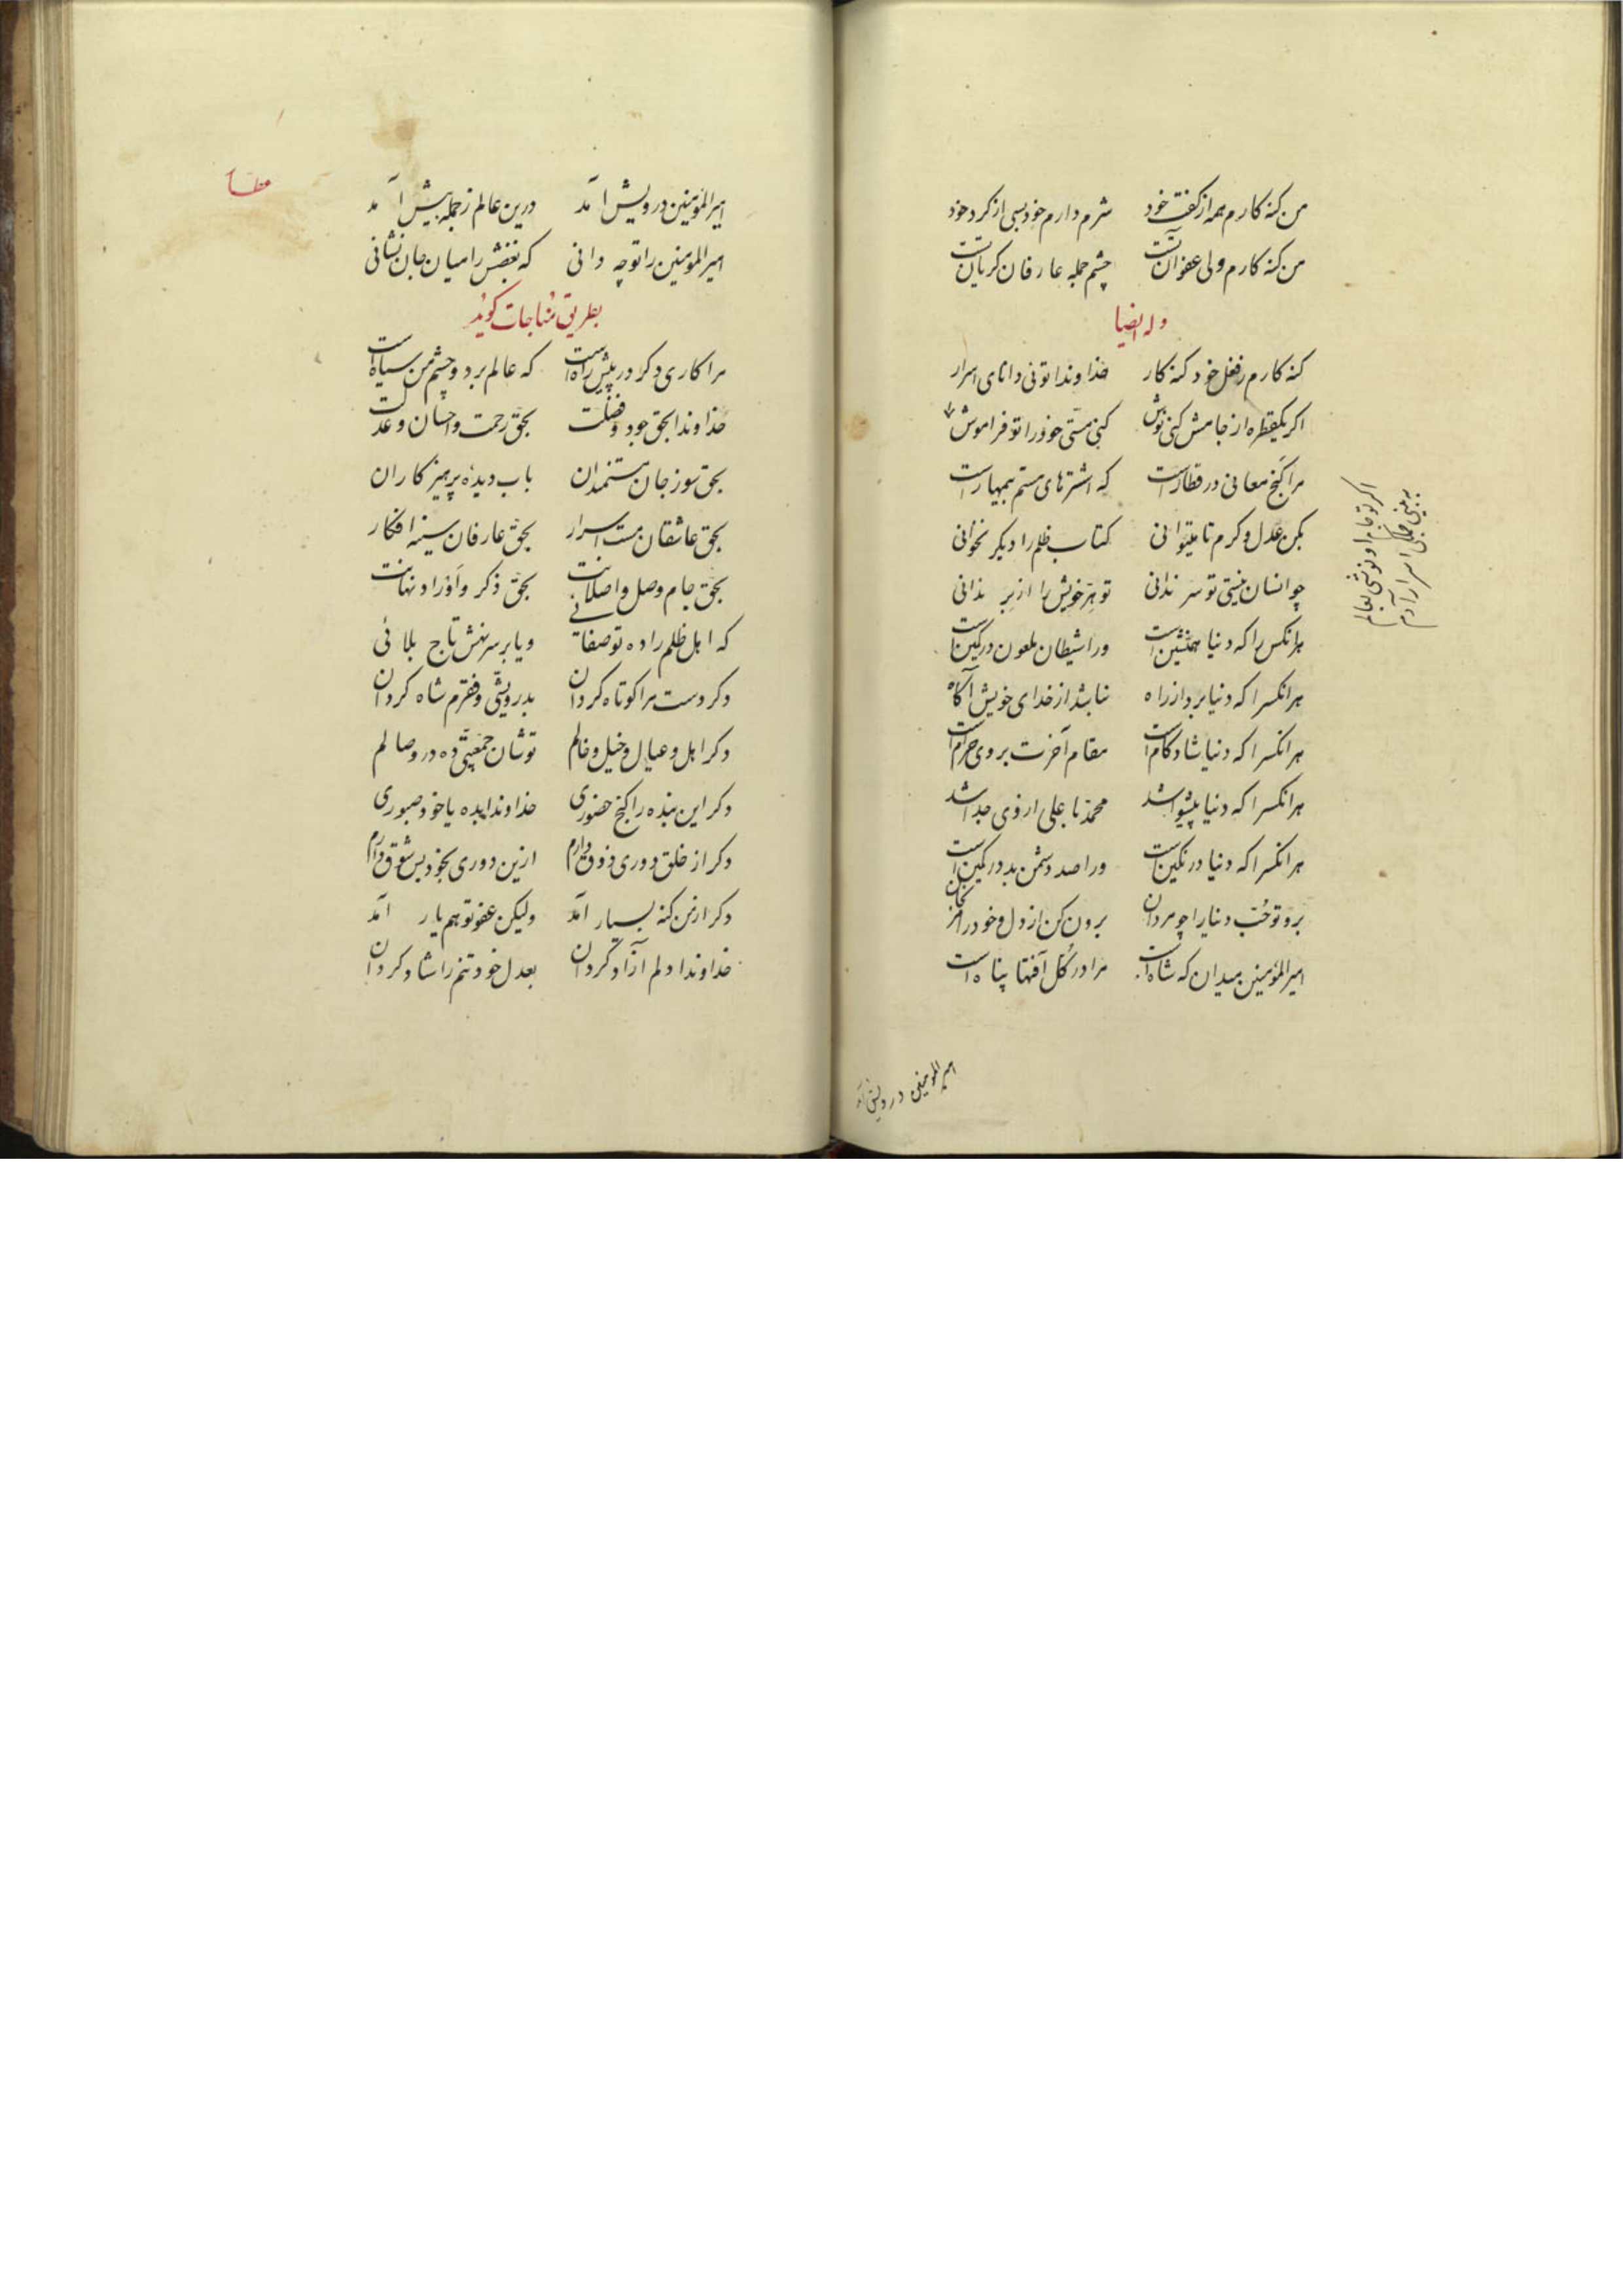 من کنه کارم همه از کفت خود شرم دارم خود بسی از کرد خود
من کنه کارم ولی عفو آن تست چشم جمله عارفان کریان تست
وله ایضا
کنه کارم زفعل خود کنه کار خداوندا توئی دانای اسرار
اکر یکقطره از جامش کنی نوش کنی هستی خود را تو فراموش
مرا کنج معانی در قطار است که اشترهای مستم بیمهار است
بکن عدل و کرم تا میتوانی کتاب ظلم را دیکر نخوانی
چو انسان نیستی تو سر ندانی تو هر خویش را از بر ندانی
هرانکس را که دنیا همنشین است ورا شیطان ملعون در کمین است
هرانکسرا که دنیا برد از راه نباشد از خدای خویش آکاه
هرانکسرا که دنیا شاد کام است مقام آخرت بر وی حرام است
هرانکسرا که دنیا پیشوا شد محمد با علی از وی جدا شد
هرانکسرا که دنیا در نکین است ورا صد دشمن بد در کمین است
برو تو حُب دنیا را چو مردان برون کن از دل و خود را
امیرالمؤمنین میدان که شاه است مرا در کُل آفتها پناه است
اکر تو جام او نوشی بعالم
به بینی جملکی اسرار آدم
امیرالمومنین درویش آمد
امیرالمؤمنین درویش آمد درین عالم ز جمله پیش آمد
امیرالمؤمنین را تو چه دانی که بغضش را میان جان نشانی
بطریق مُناجات کوید
مرا کاری دکر در پیش راه است که عالم بر دو چشم من سیاه است
خداوندا بحق جود و فضلت بحق رحمت و احسان و عدلت
بحق سوز جان مستمندان باب دیدهٔ پرهیز کاران
بحق عاشقان مست اسرار بحق عارفان سینه افکار
بحق جام وصل و اصلانت بحق ذکر و اوراد نهانت
که اهل ظلم را ده تو صفائی و یا بر سر نهش تاج بلائی
دکر دست مرا کوتاه کردان بدرویشی و فقرم شاه کردان
دکر اهل و عیال و خیل و خالم توشان جمعیتی ده در وصالم
دکر این بنده را کنج حضوری خداوندا بده یا خود صبوری
دکر از خلق دوری ذوق دارم ازین دوری بخود بس شوق دارم
دکر از من کنه بسیار آمد ولیکن عفو تو هم یار آمد
خداوندا دلم آزاد کردان بعدل خود تنم را شاد کردان